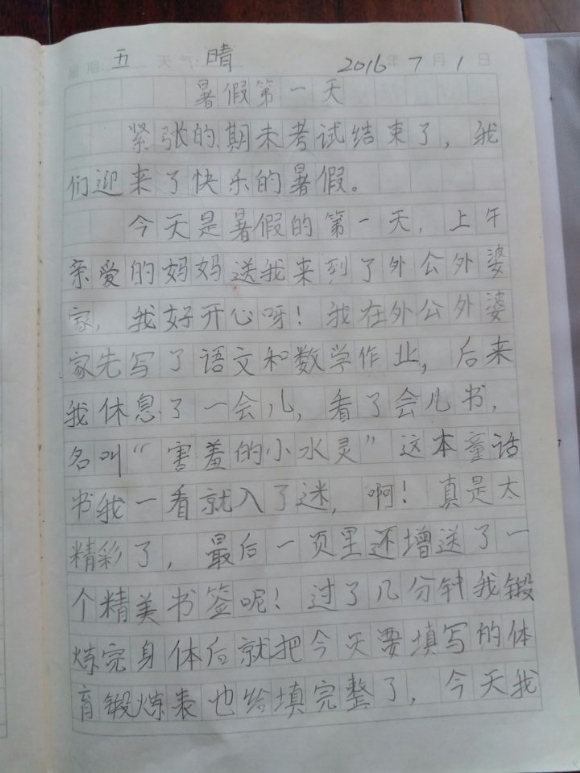 星期 五 天气: 晴 2016年 7月 1日
暑假第一天
紧张的期末考试结束了，我
们迎来了快乐的暑假。
今天是暑假的第一天，上午
亲爱的妈妈送我来到了外公外婆
家，我好开心呀！我在外公外婆
家先写了语文和数学作业，后来
我休息了一会儿，看了会儿书，
名叫“害羞的小水灵”这本童话
书我一看就入了迷，啊！真是太
精彩了，最后一页里还增送了一
个精美书签呢！过了几分钟我锻
炼完身体后就把今天要填写的体
育锻炼表也给填完整了，今天我